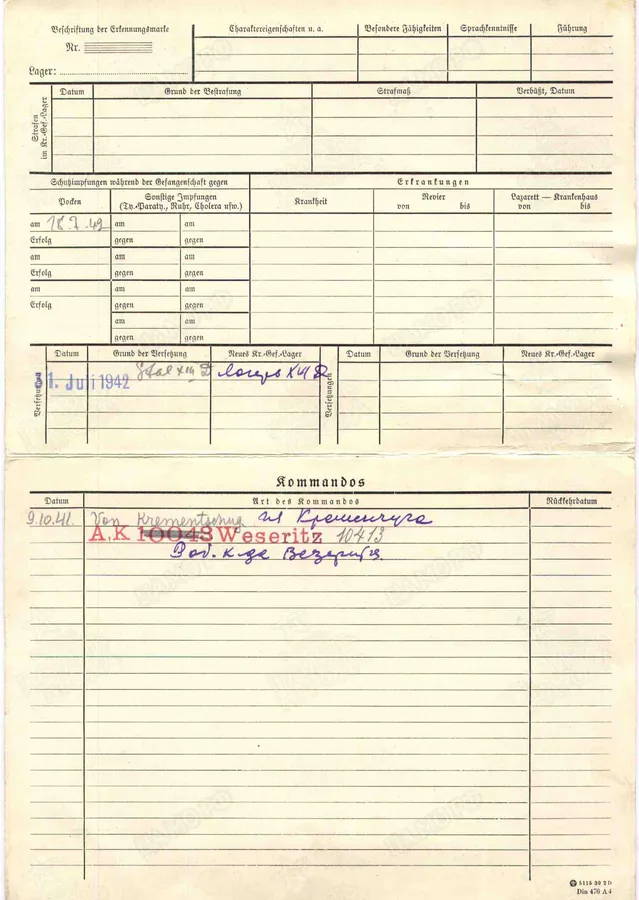 Beschriftung der Erkennungsmarke
Nr.
Lager:
Charaktereigenschaften u. a.
Besondere Fähigkeiten
Sprachkenntnisse
Führung
Strafen im Kr.-Gef.-Lager
Datum
Grund der Bestrafung
Strafmaß
Verbüßt, Datum
Schutzimpfungen während der Gefangenschaft gegen
Erkrankungen
Pocken
Sonstige Impfungen
(Ty.-Paraty., Ruhr, Cholera usw.)
Krankheit
Revier
von bis
Lazarett — Krankenhaus
von bis
am 18.7.42 am am
Erfolg gegen gegen
am am am
Erfolg gegen gegen
am am am
Erfolg gegen gegen
am am
gegen gegen
Versetzungen
Datum
Grund der Versetzung
Neues Kr.-Gef.-Lager
Versetzungen
Datum
Grund der Versetzung
Neues Kr.-Gef.-Lager
1. Juli 1942 XIII D XIII D
Kommandos
Datum
Art des Kommandos
Rückkehrdatum
9.10.41. Von Krementschug из Кременчуга
A.K 10043 Weseritz 10413
Раб. к-да Везериц.
5115 39 2 D
Din 476 A 4